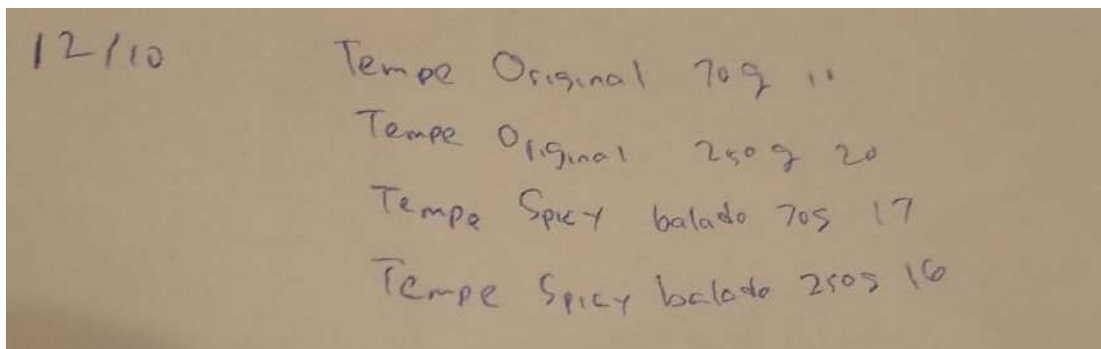 12/10 Tempe Original 70g 11
Tempe Original 250g 20
Tempe Spicy balado 70g 17
Tempe Spicy balado 250g 16